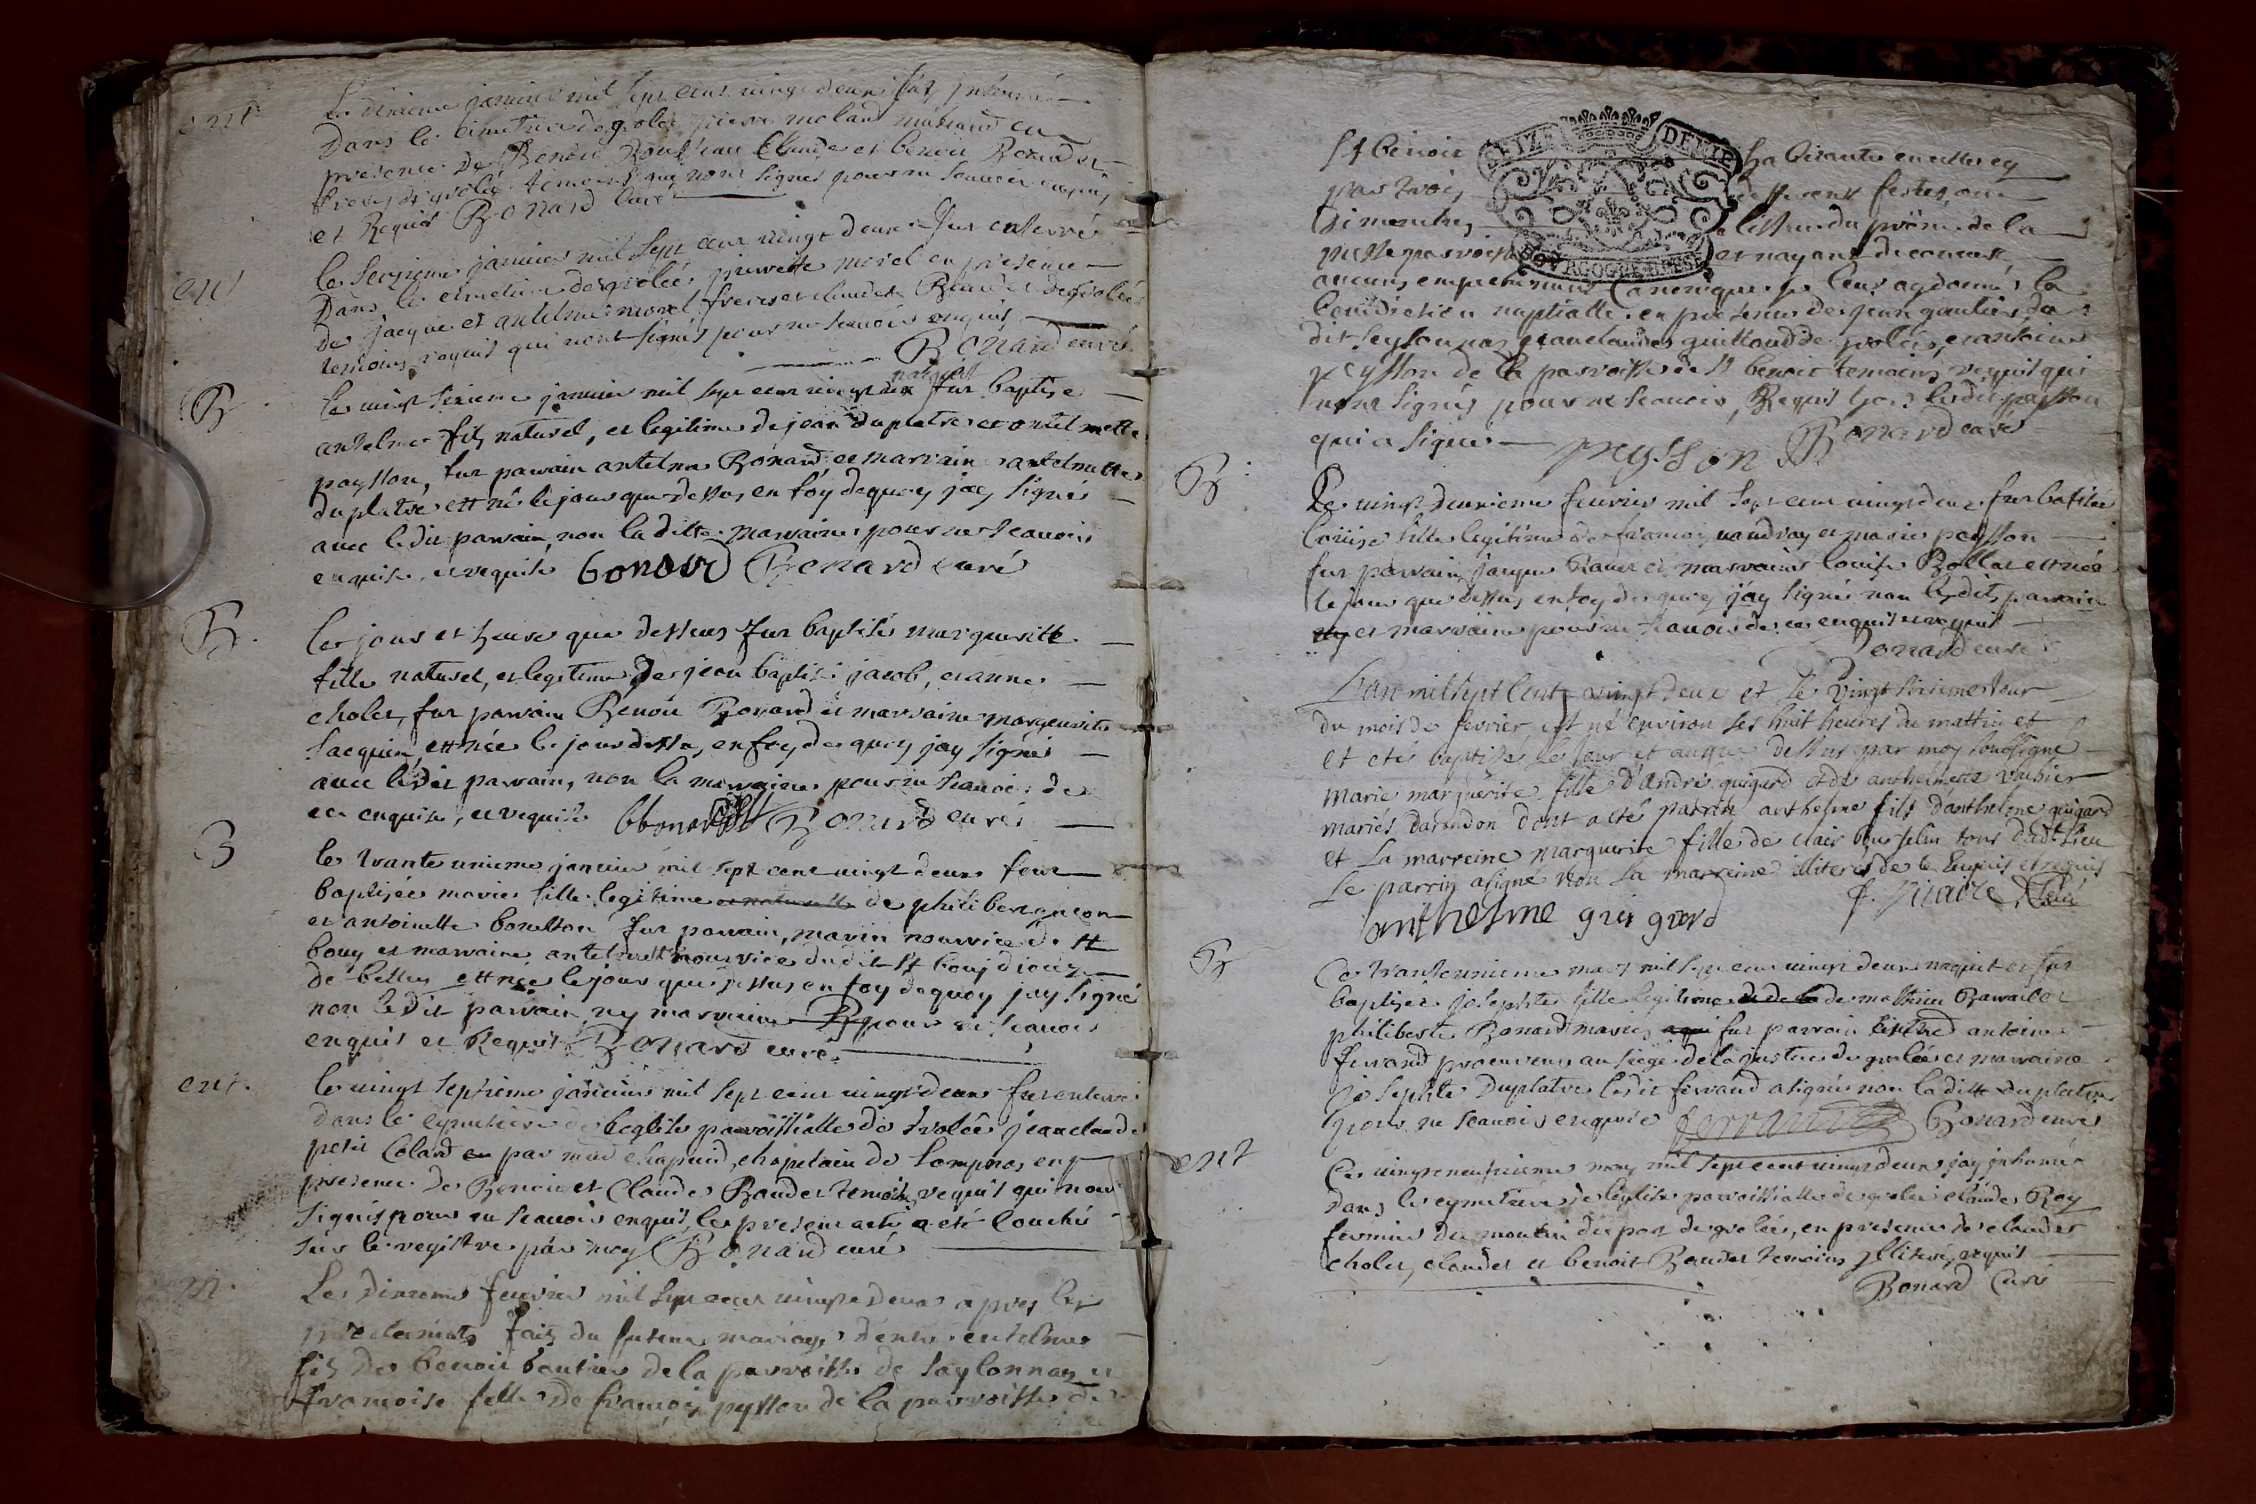 ent
Le dixieme janvier mil sept cent vingt deux fut inhumé
Dans le cimetiere de grolee pierre molan en
presence de Benoit Claude et benoit Baudet
de grolee temoins qui nont signes pour ne scavoir enquis
et Requis Bonard curé
ent
le seizieme janvier mil sept cent vingt deux fut enterré
Dans le cimetiere de grolee pierrette morel en presence
de jacque et antelme morel freres et claude Baudet de grolee
temoins requis qui nont signés pour ne scavoir enquis
Bonard curé
B
le vingt sixieme janvier mil sept cent vingt deux naquit fut baptisé
antelme fils naturel, et legitime de jean duplatre et antelmette
peysson, fut parrain antelme Bonard et marraine antelmette
duplatre et né le jour que dessus en foy de quoy jay signés
avec le dit parrain, non la ditte marraine pour ne scavoir
enquise, et requise bonard Bonard curé
B.
les jour et heure que dessus fut baptisée margueritte
fille naturel, et legitime de jean baptiste jacob, et anne
cholet, fut parrain Benoit Bonard et marraine marguerite
Jacquin, et née le jour dessu, en foy de quoy jay signés
avec ledit parrain, non la marraine pour ne scavoir de
ce enquise, et requise bbonard Bonard curé
B
le trante unieme janvier mil sept cent vingt deux fut
baptisée marie fille legitime et naturelle de philibert
et antoinette fut parrain, marin nourrice de St
bouy et marraine antelmette nourrice dudit St bouy dioceze
de belley et née le jour que dessus en foy de quoy jay signé
non le dit parrain ny marraine pour ne scavoir
enquis et Requis Bonard curé
ent.
le vingt septieme janvier mil sept cent vingt deux fut enterré
dans le cymetiere de leglise parroissialle de grolée jeanclaude
petit Colard par mrd chapuid, chapelain de Lompnas en
presence de Benoit et Claude Baudet temoins requis qui nont
signés pour ne scavoir enquis, le present acte a eté couché
sur le registre par moy Bonard curé
m.
Le dixieme fevrier mil sept cent vingt deux apres les
proclamats faits du futur mariage dentre antelme
fils de benoit gautier de la parroisse de Seyssonnas et
françoise fille de françois peysson de la parroisse de
St benoit
SEIZE DENIE
BOURGOGNE BRESSE
habitante en celle cy
par trois differents festes ou
Dimanches a lissue du prône de la
messe parroissialle et nayant decouvert
aucuns empechements Canoniques je leurs ay donnés la
benediction nuptialle en presence de jean gautier du
dit Seyssonnas jeanclaude guillaud de grolée, et antoine
peysson de la parroisse de St benoit temoins requis qui
nont signés pour ne scavoir, Requis hors ledit peysson
qui a signé peysson Bonard curé
B
Le vingt deuxieme fevrier mil sept cent vingt deux fut batisée
louise fille legitime de françois vaudray et marie peysson
fut parrain jacque et marraine louise Bollat et née
le jour que dessus en foy de quoy jay signé non lesdits parrain
ny et marraine pour ne scavoir de ce enquis et requis
Bonard curé
L'an mil sept Cent vingt deux et le vingt sixieme jour
du mois de fevrier, est né environ les huit heures du mattin et
et eté baptizé le jour et an que dessus par moy soussigné
Marie marguerite fille d'andré guigard et de anthelmette
mariés Darandon dont a eté parrin anthelme fils danthelme guigard
et La marreine Marguerite fille de clair tous dudt lieu
Le parrin a signé non La marreine illiteres de ce Enquis et requis
anthelme guigard
B
Le trante unieme mars mil sept cent vingt deux naquit et fut
baptisée josephte fille legitime de de la de mathieu Baraillet
philiberte Bonard mariés fut parrain antoine
ferrand procureur au siege de la justice de grolée et marraine
Josephte Duplatre ledit ferrand a signé non la ditte duplatre
pour ne scavoir enquise ferrand Bonard curé
ent
Le vingt neufvieme may mil sept cent vingt deux jay inhumé
dans le cymetiere de leglise parroissialle de grolée claude Roy
fermier du moulin du port de grolée, en presence de claude
cholet, claude et benoit Baudet temoins illiteres, requis
Bonard Curé